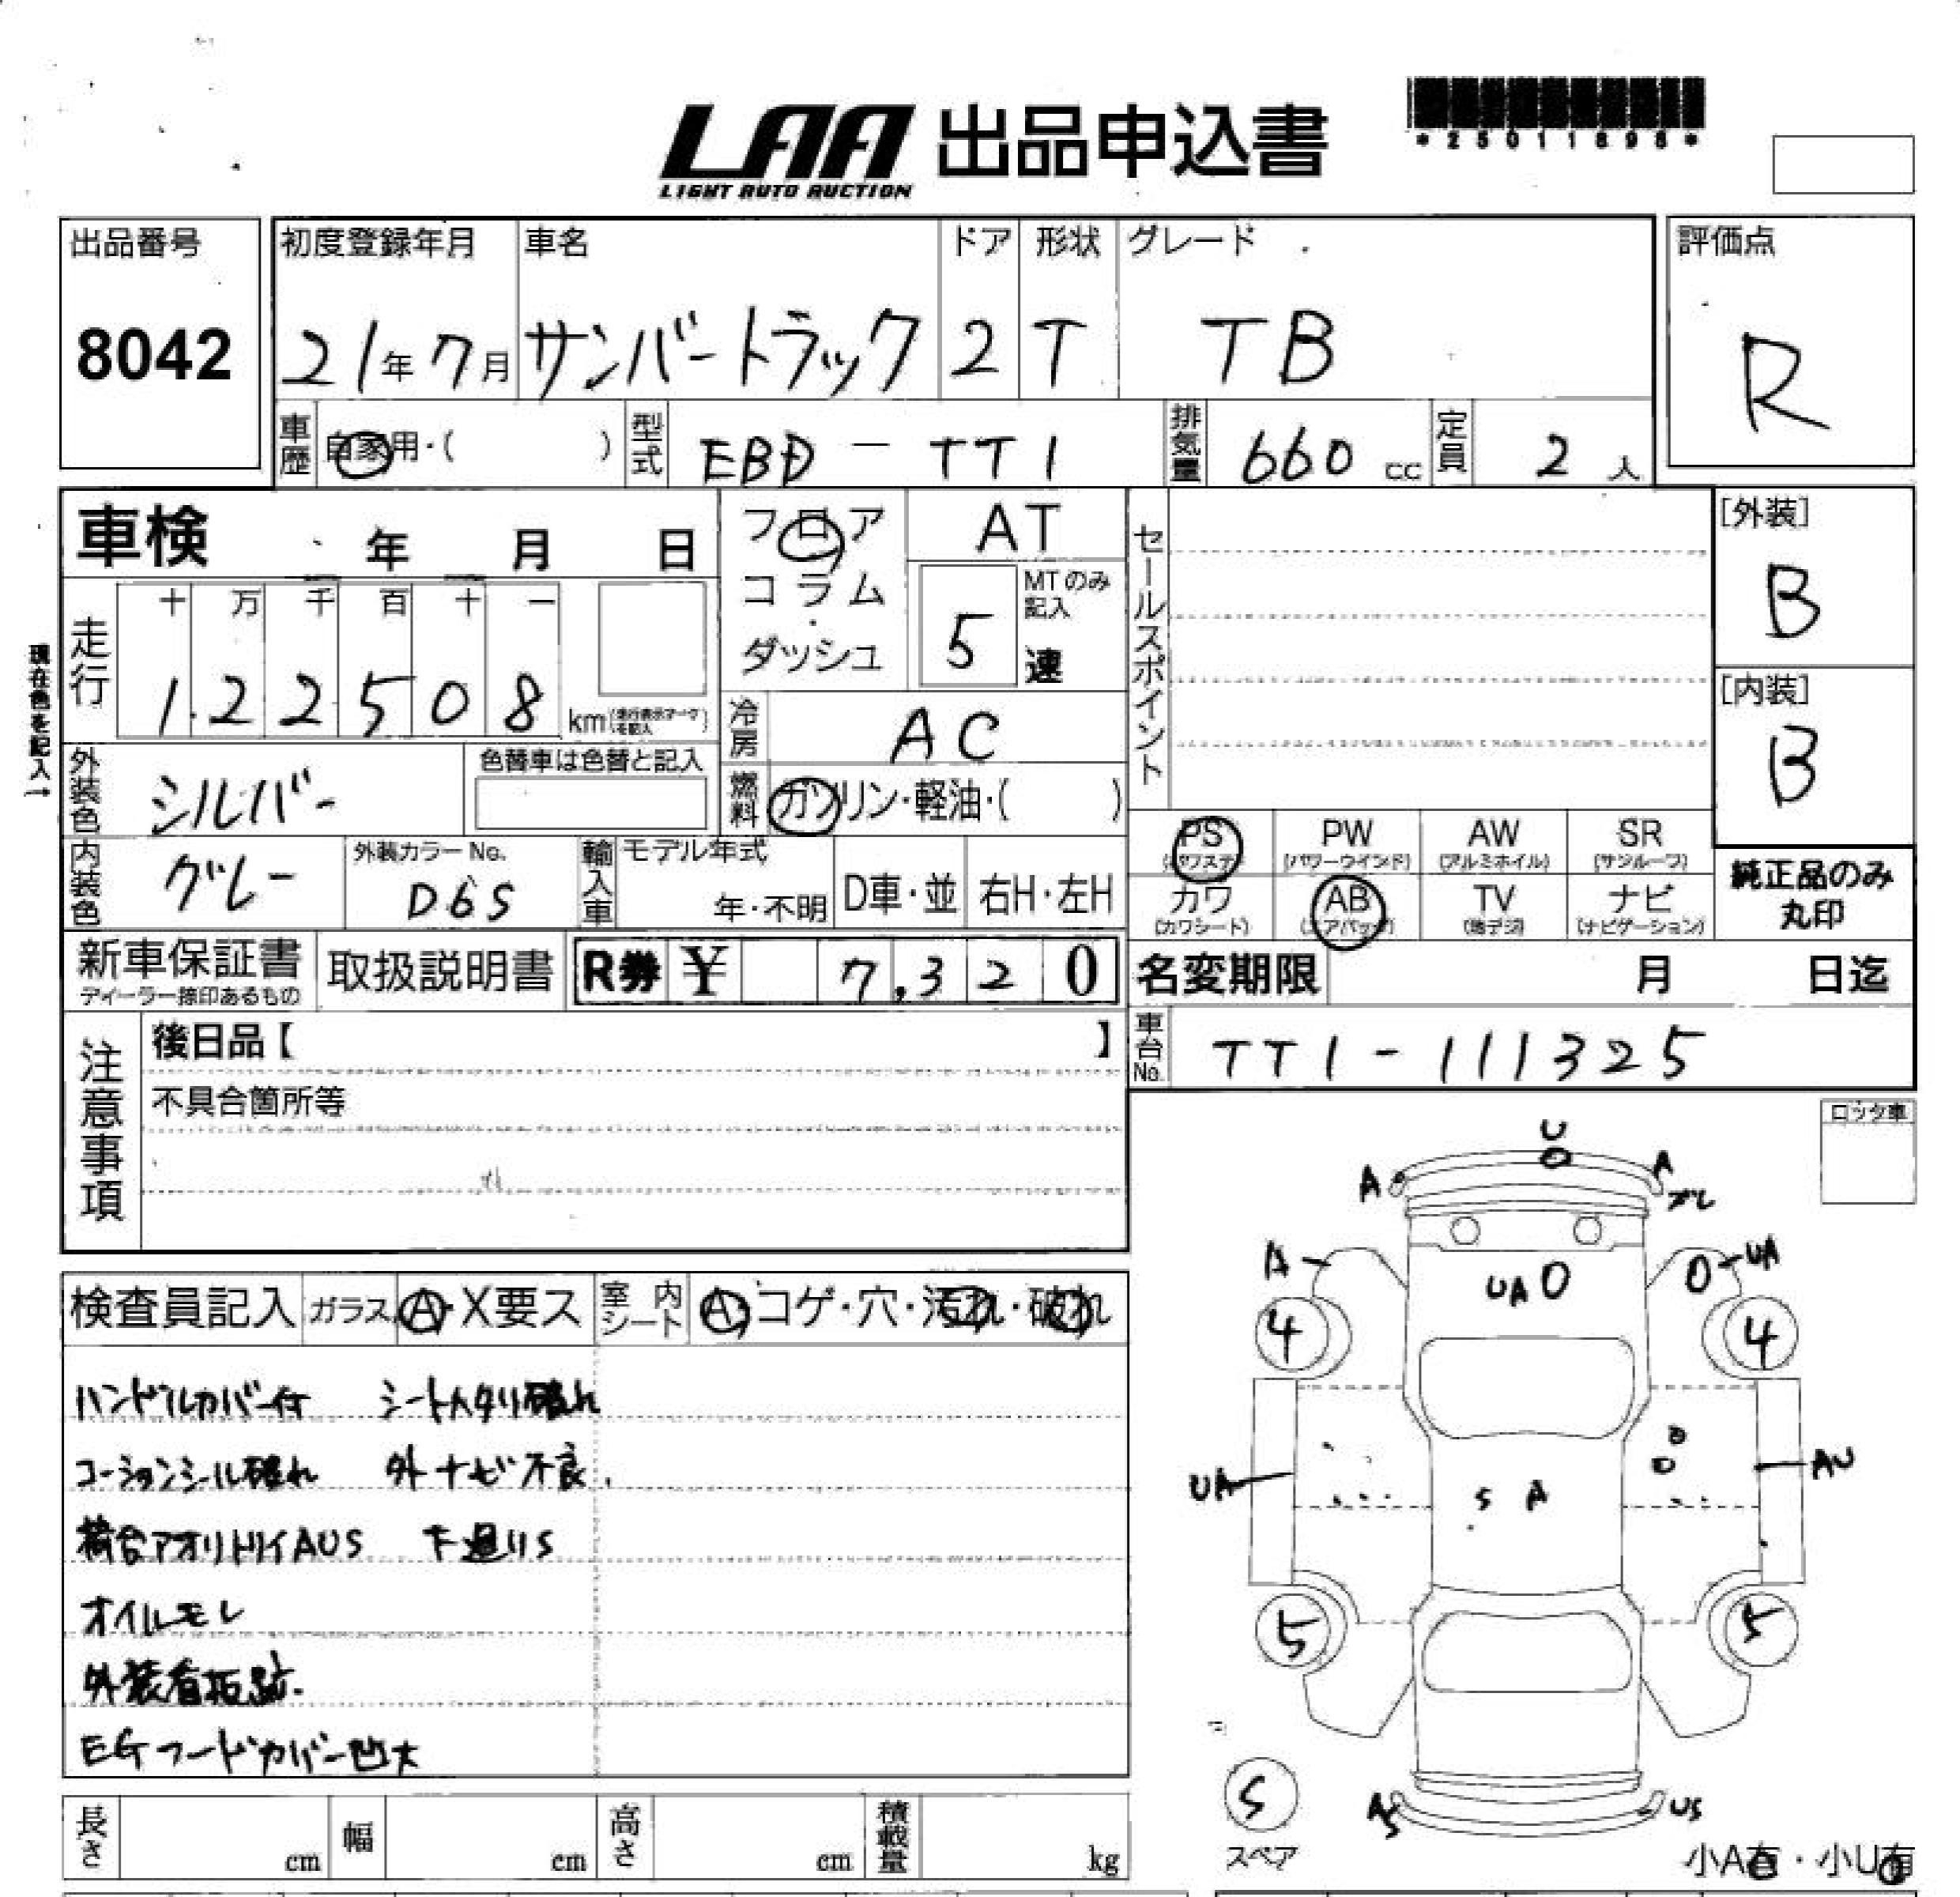 LAA 出品申込書
LIGHT AUTO AUCTION
*25011898*
出品番号 初度登録年月 車名 ドア 形状 グレード 評価点
8042 21年7月 サンバートラック 2 T TB R
車歴 自家用・( ) 型式 EBD-TT1 排気量 660 cc 定員 2 人
車検 年 月 日 フロア AT セールスポイント [外装]
コラム・ MTのみ記入 B
現在色を記入→
走行 十 万 千 百 十 一
122508 km
ダッシュ 5 速 [内装]
冷房 AC B
外装色 シルバー 色替車は色替と記入 燃料 ガソリン・軽油・( )
PS PW AW SR
(パワステ) (パワーウインド) (アルミホイル) (サンルーフ)
内装色 グレー 外装カラーNo. D6S 輸入車 モデル年式 年・不明 D車・並 右H・左H
カワ AB TV ナビ 純正品のみ
(カワシート) (エアバッグ) (地デジ) (ナビゲーション) 丸印
新車保証書 取扱説明書 R券 ¥ 7,320 名変期限 月 日迄
ディーラー捺印あるもの
注意事項 後日品【 】 車台No. TT1-111325
不具合箇所等
ロック車
検査員記入 ガラス A・X要ス 室内シート A・コゲ・穴・汚れ・破れ
ハンドルカバー付 シートヘタリ破れ
コーションシール破れ 外ナビ不良.
荷台アオリトリイAUS 下廻りS
オイルモレ
外装看板跡.
EGフードカバー凹大
U
A A
ズレ
A UA
UA
4 4
UA AU
S A
5 5
S
スペア
AS US
小A有・小U有
長さ cm 幅 cm 高さ cm 積載量 kg